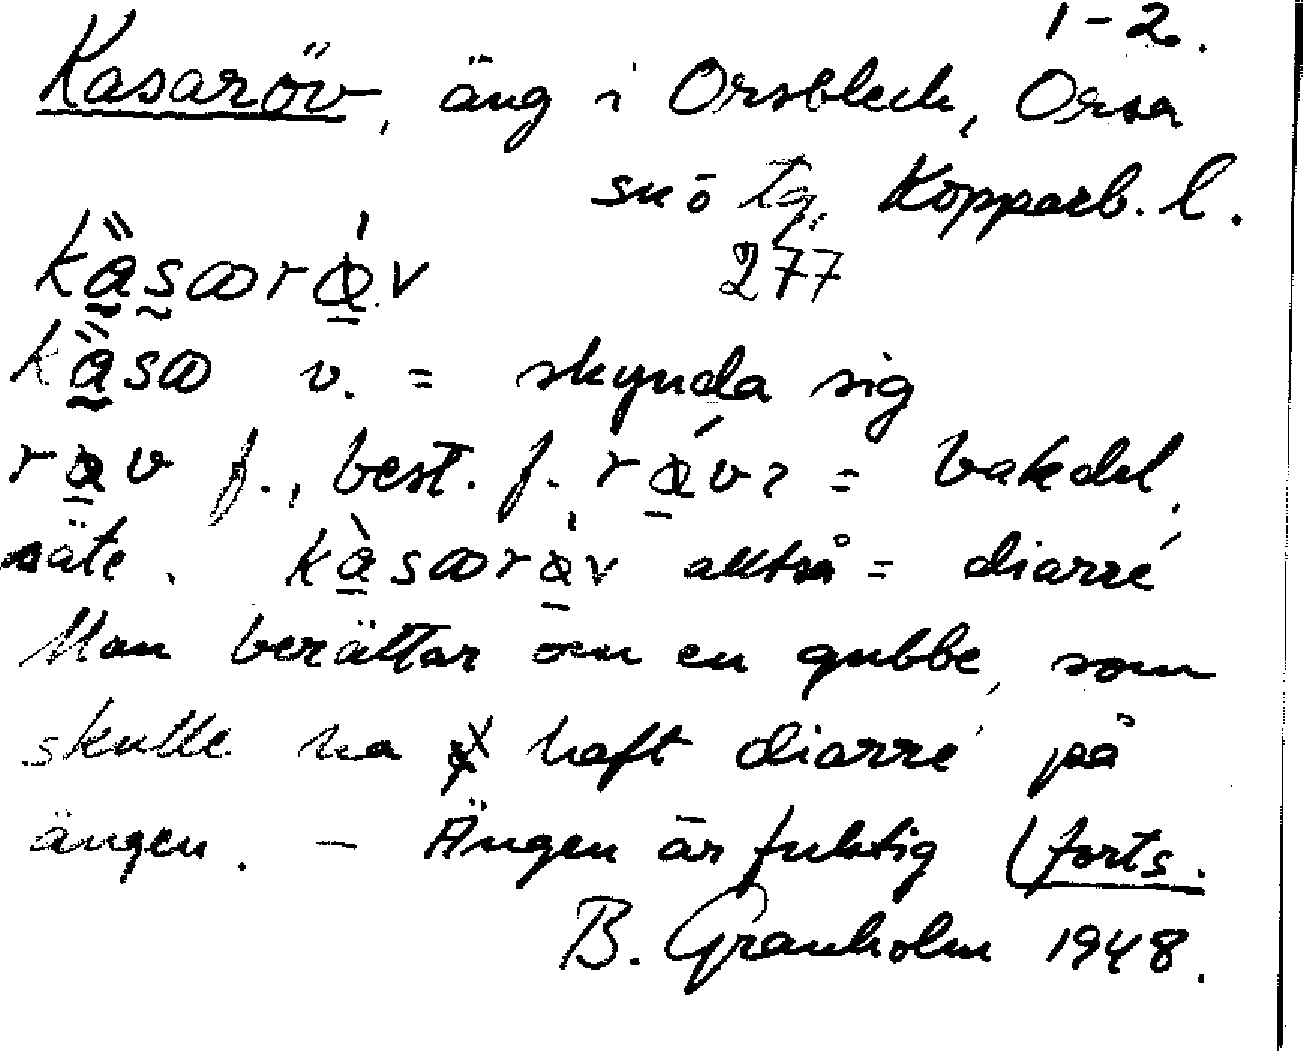 1-2.
Kasaröv, äng i Orsbleck, Orsa
snö tg. Kopparb. l.
277
v. = skynda sig
f., best. f. = bakdel,
säte. alltså = diarré
Man berättar om en gubbe, som
skulle ha haft diarré på
ängen. - Ängen är fuktig (forts.
B. Granholm 1948.